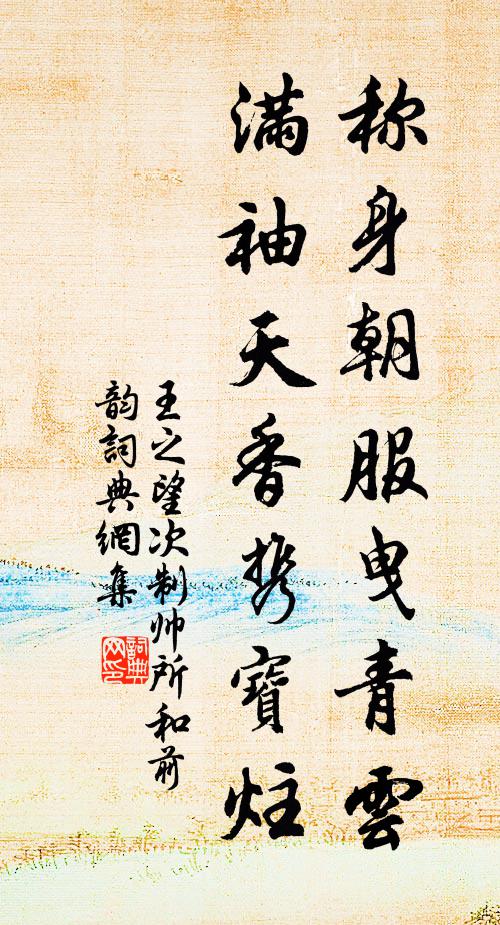 称身朝服曳青雲
滿袖天香携寶炷
王之望次制帅所和前
韵詞典網集
詞典
网印